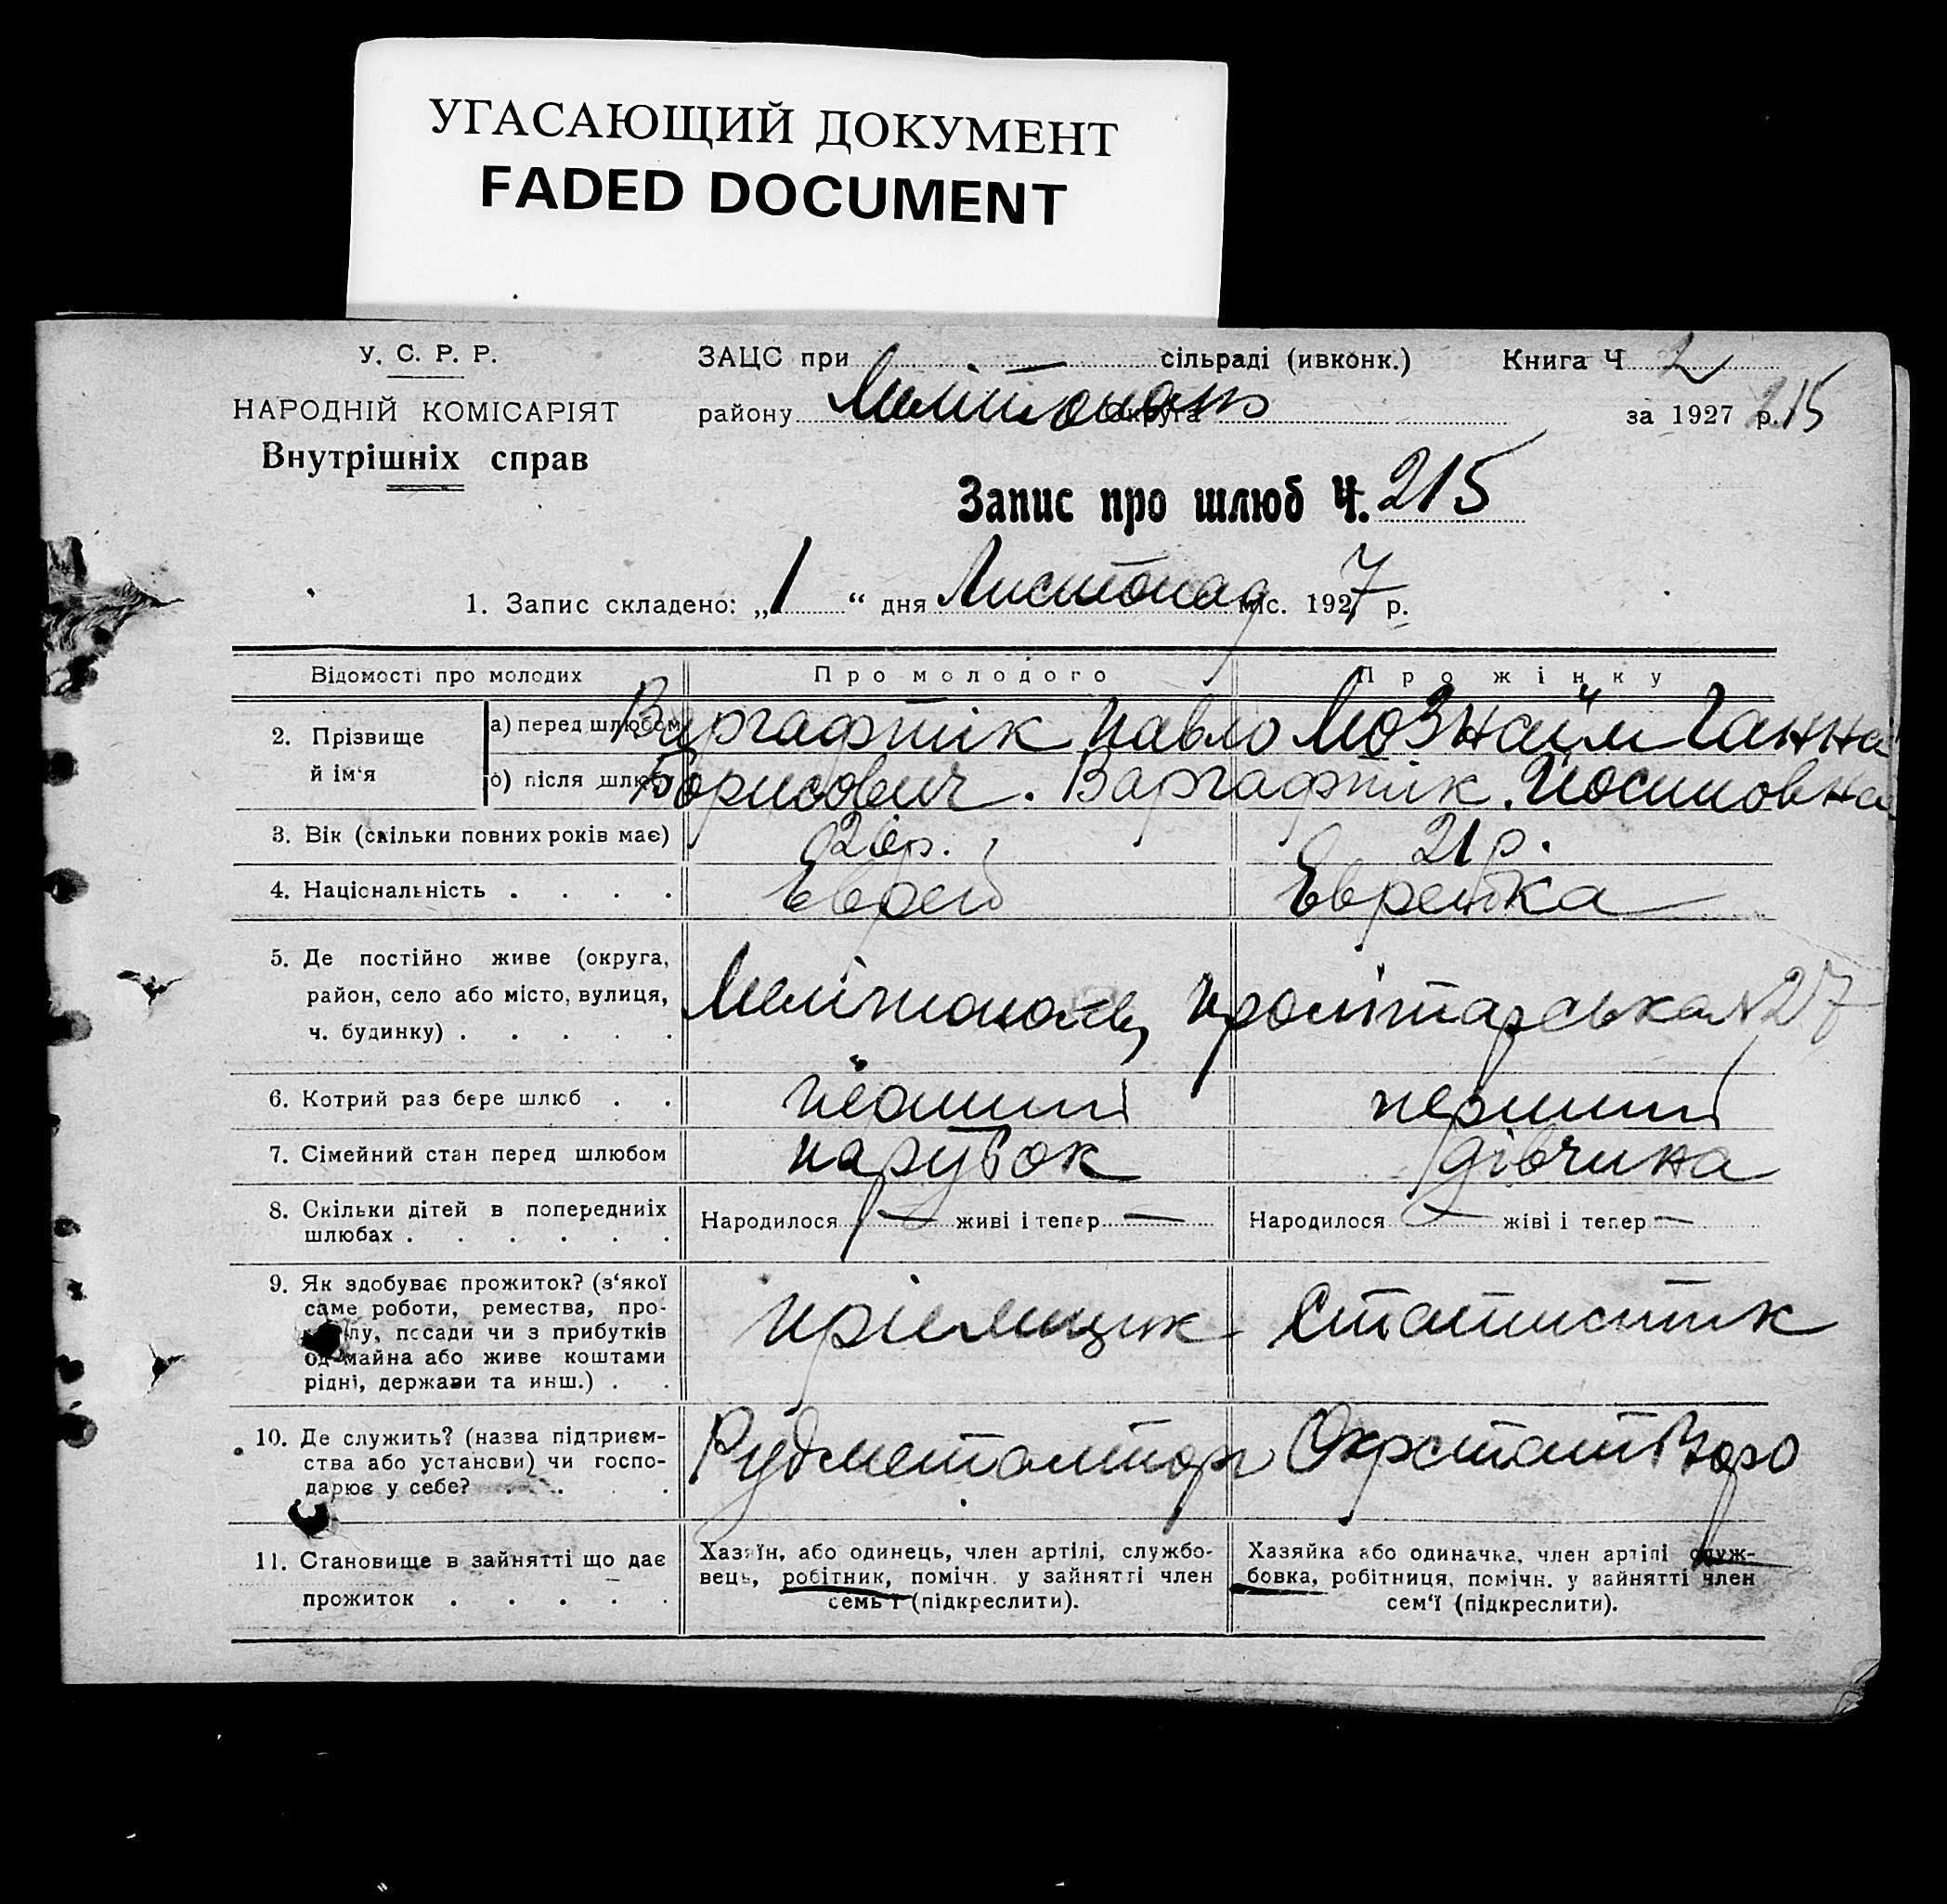 УГАСАЮЩИЙ ДОКУМЕНТ
FADED DOCUMENT
У. С. Р. Р.
НАРОДНІЙ КОМІСАРІЯТ
Внутрішніх справ
ЗАЦС при — сільраді (ивконк.) Книга Ч 2
району Мелітополь округа за 1927 р. 215
Запис про шлюб Ч. 215
1. Запис складено: „1“ дня Листопад міс. 1927 р.
Відомості про молодих Про молодого Про жінку
2. Прізвище й ім‘я
а) перед шлюбом Варгафтік Павло Мознаїм Ганна
б) після шлюбу Борисович. Варгафтік. Йосиповна
3. Вік (скільки повних років має) 26 р. 21 р.
4. Національність . . . . Еврей Еврейка
5. Де постійно живе (округа,
район, село або місто, вулиця,
ч. будинку) . . . . . Мелітополь, Пролітарська №27
6. Котрий раз бере шлюб . . перший перший
7. Сімейний стан перед шлюбом парубок дівчина
8. Скільки дітей в попередніх
шлюбах . . . . . .
Народилося — живі і тепер — Народилося — жіві і тепер —
9. Як здобуває прожиток? (з‘якої
саме роботи, ремества, про-
мислу, посади чи з прибутків
од майна або живе коштами
рідні, держави та инш.) . .
Приемщик Статистик
10. Де служить? (назва підприєм-
ства або установи) чи госпо-
дарює у себе? . . . .
Рудметалторг Окрстатбюро
11. Становище в зайнятті що дає
прожиток . . . . .
Хазяїн, або одинець, член артілі, службо-
вець, робітник, помічн. у зайнятті член
семь‘ї (підкреслити).
Хазяйка або одиначка, член артілі служ-
бовка, робітниця, помічн. у зайнятті член
сем‘ї (підкреслити).